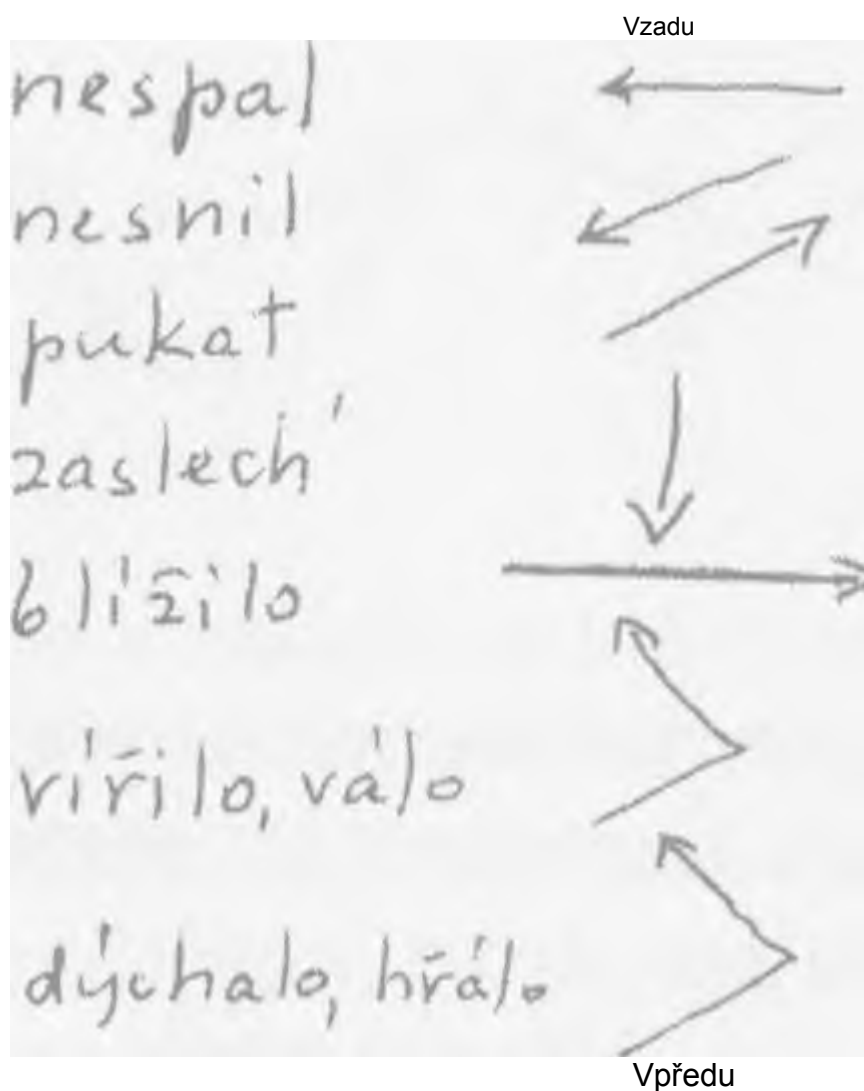 Vzadu
nespal
nesnil
pukat
zaslech'
blížilo
vířilo, válo
dýchalo, hřálo
Vpředu